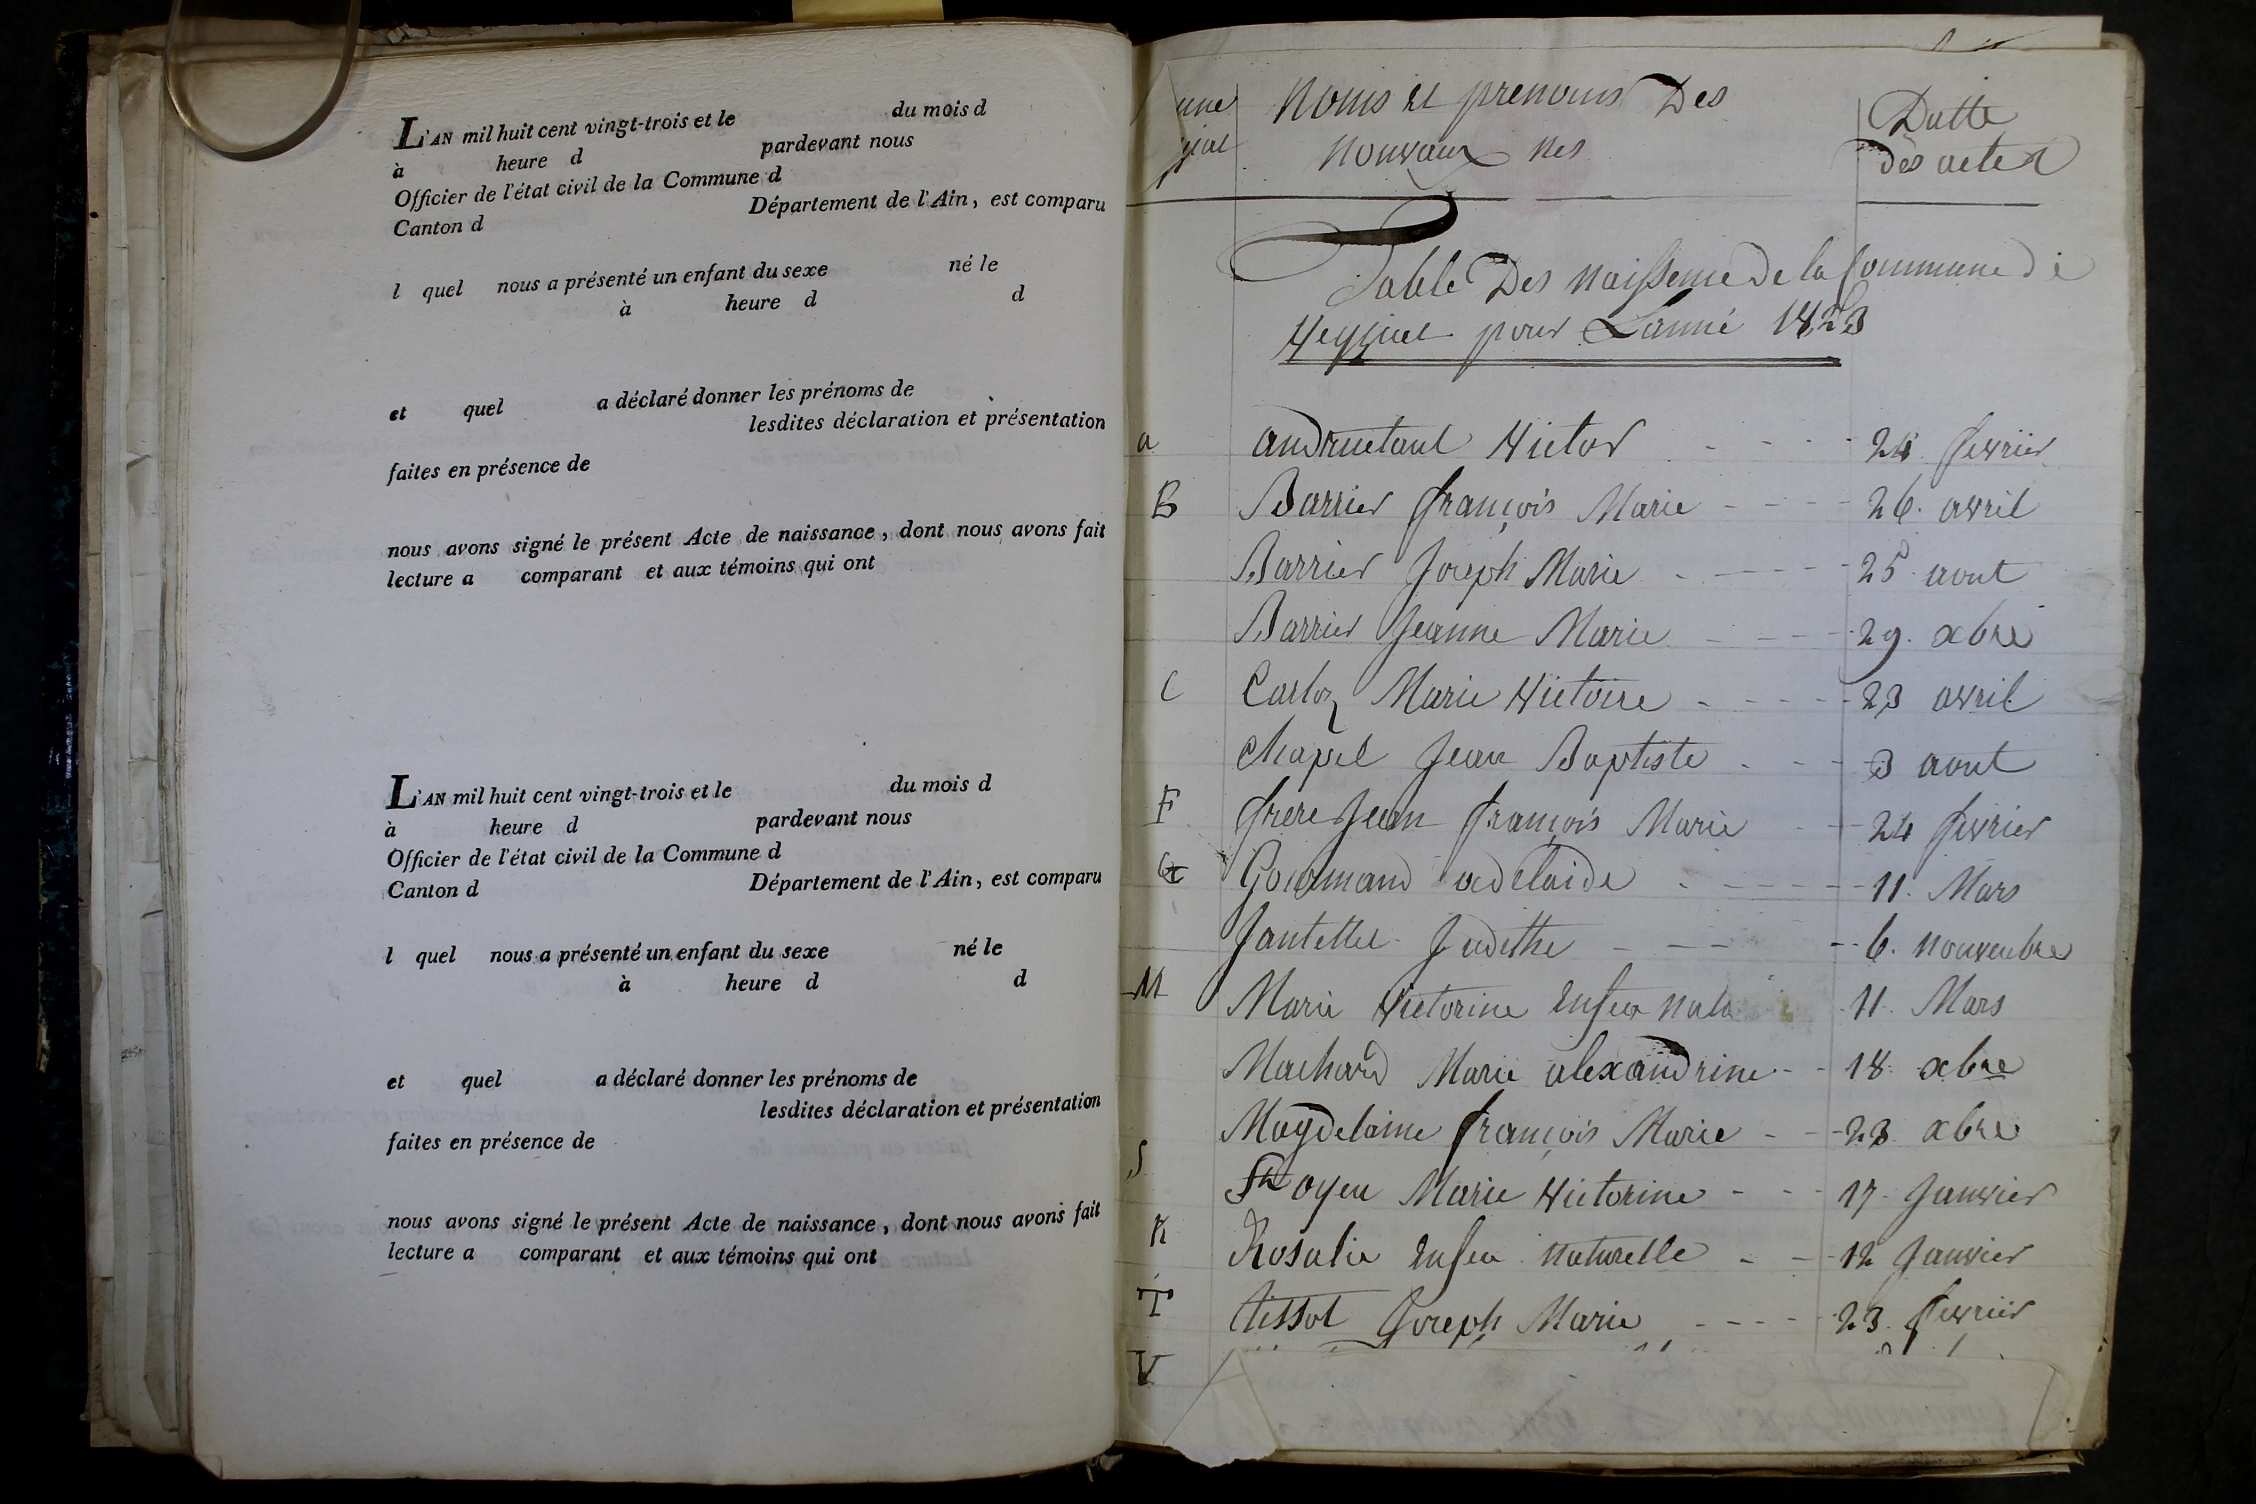 L'AN mil huit cent vingt-trois et le du mois d
à heure d pardevant nous
Officier de l'état civil de la Commune d
Canton d Département de l'Ain, est comparu
l quel nous a présenté un enfant du sexe né le
à heure d d
et quel a déclaré donner les prénoms de
lesdites déclaration et présentation
faites en présence de
nous avons signé le présent Acte de naissance, dont nous avons fait
lecture a comparant et aux témoins qui ont
L'AN mil huit cent vingt-trois et le du mois d
à heure d pardevant nous
Officier de l'état civil de la Commune d
Canton d Département de l'Ain, est comparu
l quel nous a présenté un enfant du sexe né le
à heure d d
et quel a déclaré donner les prénoms de
lesdites déclaration et présentation
faites en présence de
nous avons signé le présent Acte de naissance, dont nous avons fait
lecture a comparant et aux témoins qui ont
Noms et prenoms Des Datte
nouvaux nes des actes
Table Des naissence de la Commune de
pour Lanné 1823
a andruetant Victor 24 fevrier
B Barrier françois Marie 26. avril
Barrier Joseph Marie 25 aout
Barrier Jeanne Marie 29. xbre
C Carloz Marie Victoire 23 avril
Chapel Jean Baptiste 3 aout
F frere Jean françois Marie 24 fevrier
G Gourmand adelaide 11. Mars
Jantellet Judithe 6. nouvenbre
M Marie Victorine Enfen natu 11. Mars
Machard Marie alexandrine 18. xbre
Magdelaine françois Marie 23 xbre
S St oyen Marie Victorine 17 Janvier
R Rosalie Enfen naturelle 12 Janvier
T tissot Joseph Marie 23 fevrier
V